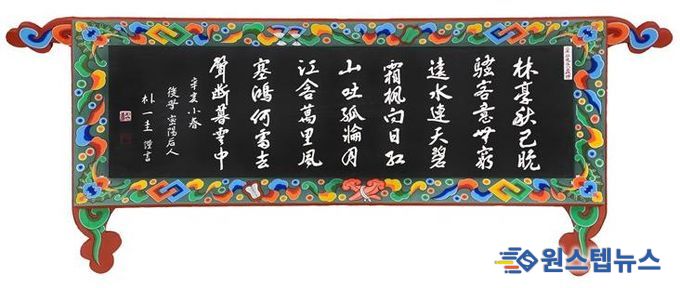 林亭秋已晩
騷客意無窮
遠水連天碧
霜楓向日紅
山吐孤輪月
江含萬里風
塞鴻何處去
聲斷暮雲中
辛亥小春
後學 密陽后人
朴一圭 謹書
원스텝뉴스